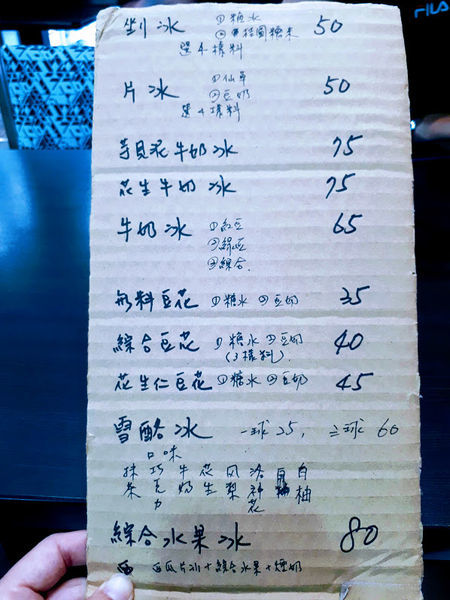 FILA
剉冰 ①糖水 50
②桂圓糖水
選4樣料
片冰 ①仙草 50
②豆奶
選4樣料
芋泥牛奶冰 75
花生牛奶冰 75
牛奶冰 ①紅豆 65
②綠豆
③綜合
無料豆花 ①糖水 ②豆奶 35
綜合豆花 ①糖水 ②豆奶 40
(3樣料)
花生仁豆花 ①糖水 ②豆奶 45
雪酪冰 一球25, 三球60
口味
抹茶 巧克力 牛奶 花生 鳳梨 洛神花 白柚
綜合水果冰 80
西瓜片冰+綜合水果+煉奶